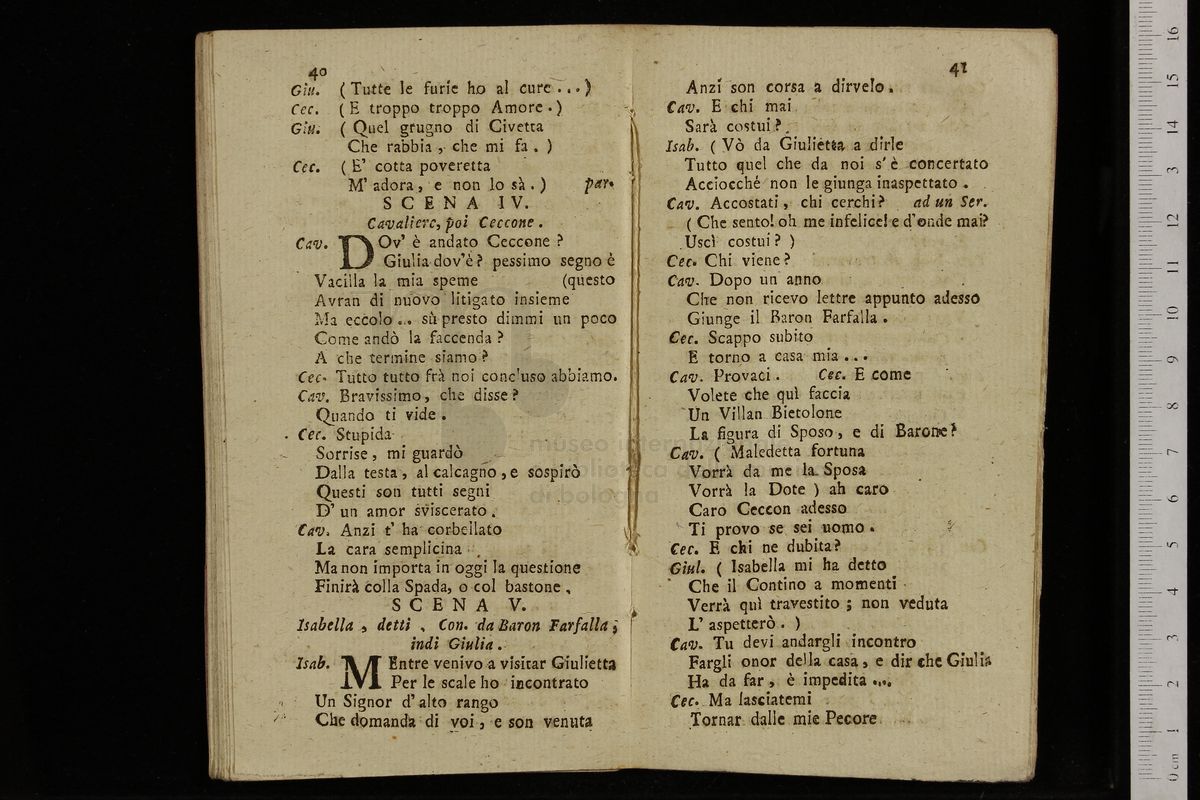 40
Giu. (Tutte le furie ho al cure...)
Cec. (E troppo troppo Amore.)
Giu. (Quel grugno di Civetta
Che rabbia, che mi fa.)
Cec. (E' cotta poveretta
M' adora, e non lo sà.) par.
SCENA IV.
Cavaliere, poi Ceccone.
Cav. DOv' è andato Ceccone?
Giulia dov'è? pessimo segno è
Vacilla la mia speme (questo
Avran di nuovo litigato insieme
Ma eccolo... sù presto dimmi un poco
Come andò la faccenda?
A che termine siamo?
Cec. Tutto tutto frà noi conc'uso abbiamo.
Cav. Bravissimo, che disse?
Quando ti vide.
Cec. Stupida
Sorrise, mi guardò
Dalla testa, al calcagno, e sospirò
Questi son tutti segni
D' un amor sviscerato.
Cav. Anzi t' ha corbellato
La cara semplicina
Ma non importa in oggi la questione
Finirà colla Spada, o col bastone,
SCENA V.
Isabella, detti, Con. da Baron Farfalla;
indi Giulia.
Isab. MEntre venivo a visitar Giulietta
Per le scale ho incontrato
Un Signor d' alto rango
Che domanda di voi, e son venuta
41
Anzi son corsa a dirvelo.
Cav. E chi mai
Sarà costui?
Isab. (Vò da Giulietta a dirle
Tutto quel che da noi s' è concertato
Acciocché non le giunga inaspettato.
Cav. Accostati, chi cerchi? ad un Ser.
(Che sento! oh me infelice! e d'onde mai?
Uscì costui?)
Cec. Chi viene?
Cav. Dopo un anno
Che non ricevo lettre appunto adesso
Giunge il Baron Farfalla.
Cec. Scappo subito
E torno a casa mia...
Cav. Provaci. Cec. E come
Volete che quì faccia
Un Villan Bietolone
La figura di Sposo, e di Barone?
Cav. (Maledetta fortuna
Vorrà da me la Sposa
Vorrà la Dote) ah caro
Caro Ceccon adesso
Ti provo se sei uomo.
Cec. E chi ne dubita?
Giul. (Isabella mi ha detto
Che il Contino a momenti
Verrà quì travestito; non veduta
L' aspetterò.)
Cav. Tu devi andargli incontro
Fargli onor della casa, e dir che Giulia
Ha da far, è impedita ....
Cec. Ma lasciatemi
Tornar dalle mie Pecore
museo internazionale
biblioteca della musica
di bologna
0 cm 1 2 3 4 5 6 7 8 9 10 11 12 13 14 15 16